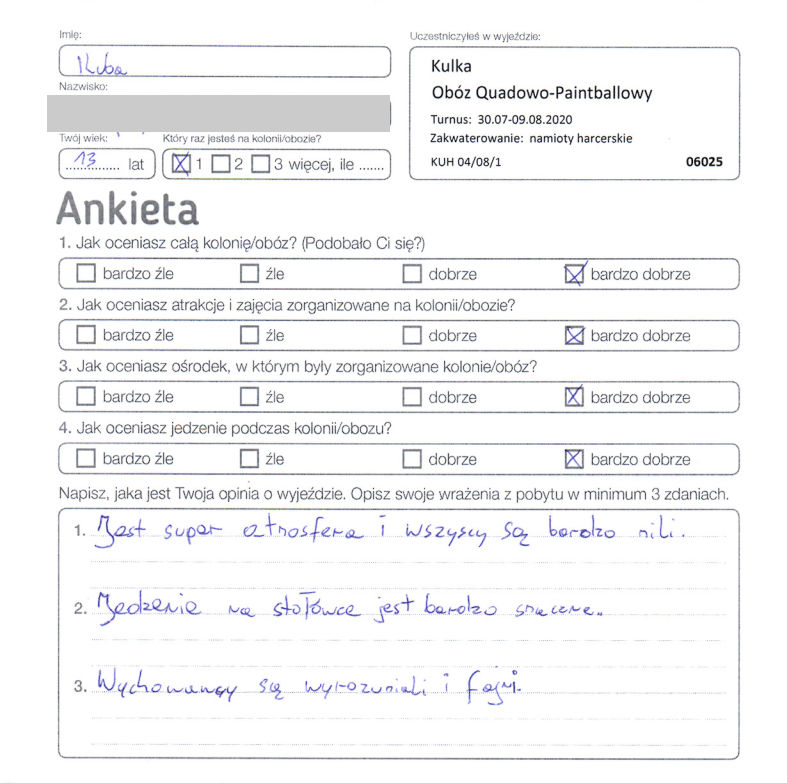 Imię:
Kuba
Nazwisko:
Twój wiek:
13 lat
Który raz jesteś na kolonii/obozie?
1 2 3 więcej, ile .......
Uczestniczyłeś w wyjeździe:
Kulka
Obóz Quadowo-Paintballowy
Turnus: 30.07-09.08.2020
Zakwaterowanie: namioty harcerskie
KUH 04/08/1 06025
Ankieta
1. Jak oceniasz całą kolonię/obóz? (Podobało Ci się?)
bardzo źle źle dobrze bardzo dobrze
2. Jak oceniasz atrakcje i zajęcia zorganizowane na kolonii/obozie?
bardzo źle źle dobrze bardzo dobrze
3. Jak oceniasz ośrodek, w którym były zorganizowane kolonie/obóz?
bardzo źle źle dobrze bardzo dobrze
4. Jak oceniasz jedzenie podczas kolonii/obozu?
bardzo źle źle dobrze bardzo dobrze
Napisz, jaka jest Twoja opinia o wyjeździe. Opisz swoje wrażenia z pobytu w minimum 3 zdaniach.
1. Jest super atmosfera i wszyscy są bardzo mili.
2. Jedzenie na stołówce jest bardzo smaczne.
3. Wychowawcy są wyrozumiali i fajni.